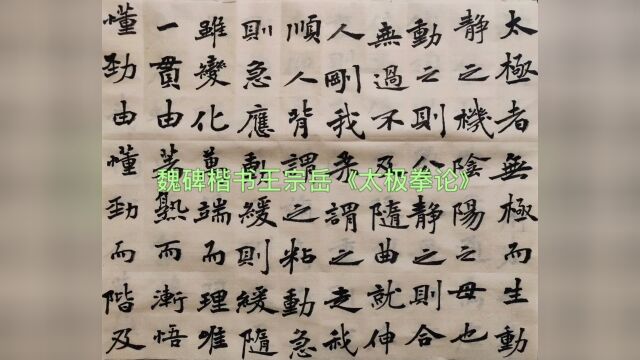 太極者無極而生動
静之機陰陽之母也
動之則分静之則合
無過不及隨曲就伸
人剛我柔謂之走我
順人背謂之粘動急
則急應動緩則緩隨
雖變化萬端而理唯
一貫由著熟而漸悟
懂劲由懂劲而階及
魏碑楷书王宗岳《太极拳论》